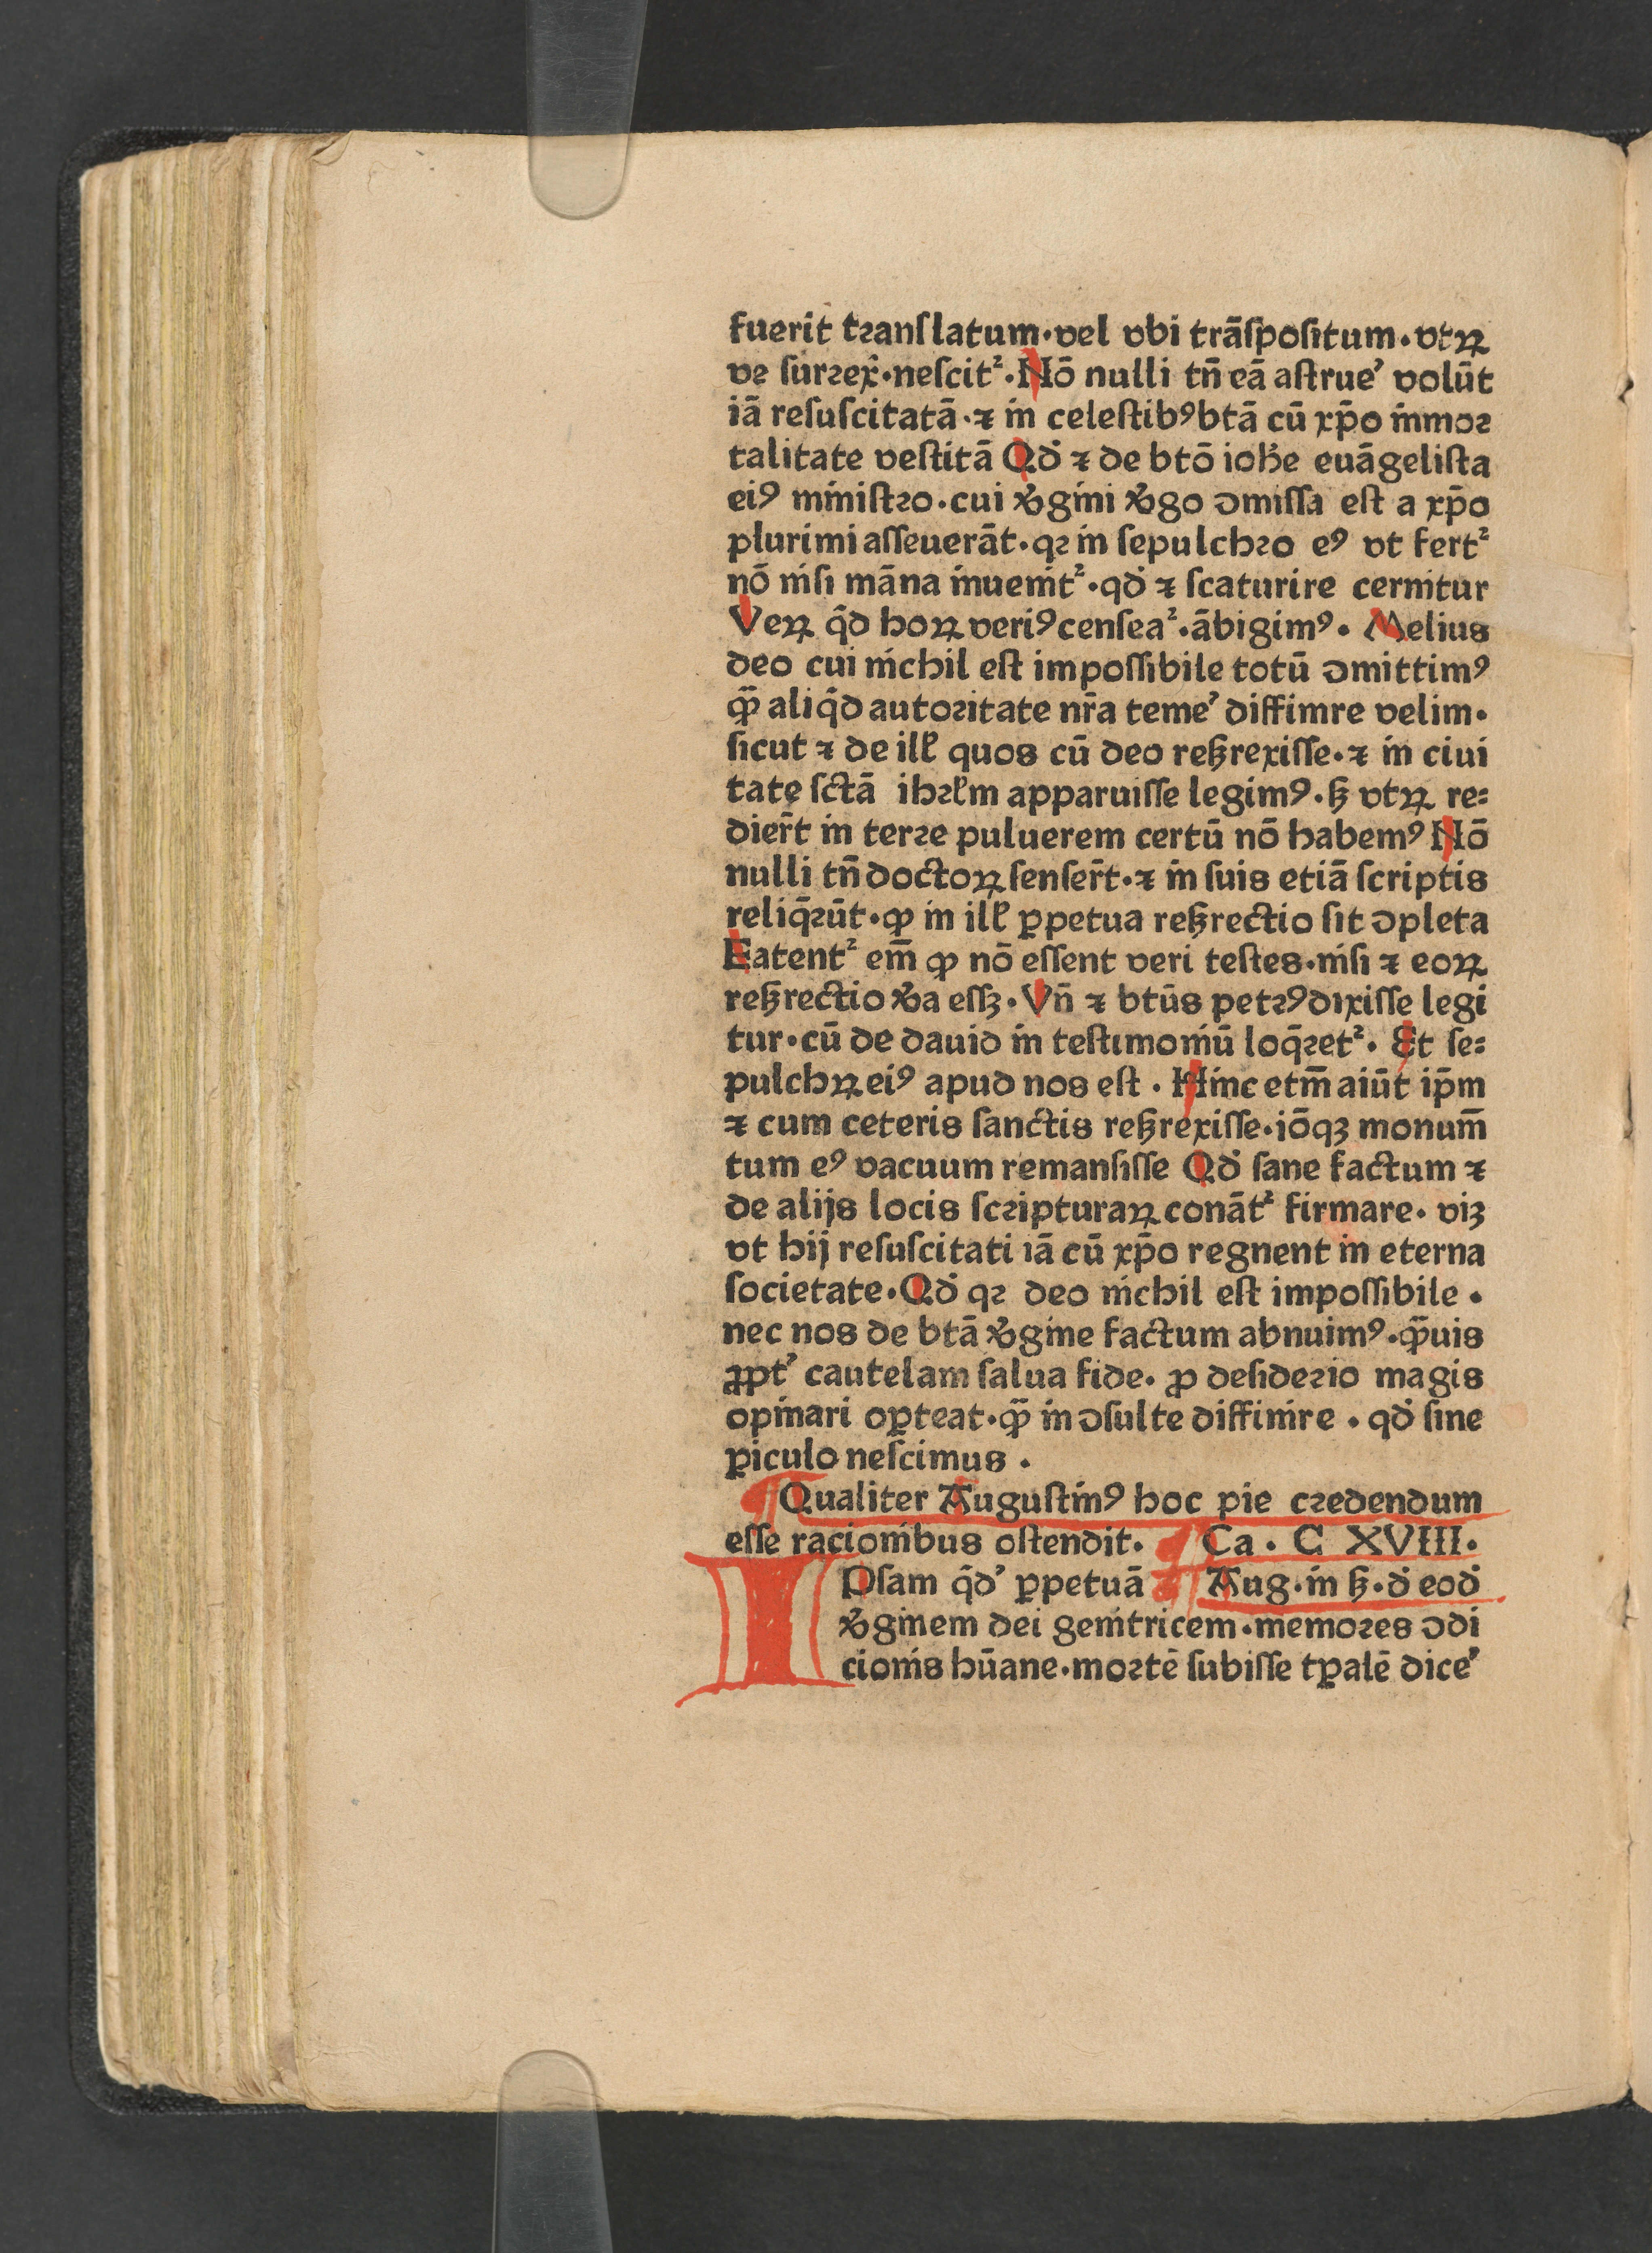 fuerit tꝛanſlatum·vel vbi trāſpoſitum·vtꝝ
ve ſurꝛex̄·neſcitᷣ·Nō nulli tn̄ eā aſtrue᷒ volūt
iā reſuſcitatā·⁊ in celeſtibꝰ btā cū xp̄o immoꝛ
talitate veſtitā Qd̓ ⁊ de btō ioh̄e euāgeliſta
eiꝰ miniſtꝛo·cui v̓gini v̓go ↄmiſſa eſt a xp̄o
plurimi aſſeuerāt·qꝛ in ſepulchꝛo eꝰ vt fertᷣ
nō niſi māna inuenitᷣ·qd̓ ⁊ ſcaturire cernitur
Veꝝ q̄d hoꝝ veriꝰ cenſeaᷣ·ābigimꝰ· Melius
deo cui nichil eſt impoſſibile totū ↄmittimꝰ
ꝙ̄ aliq̄d autoꝛitate nr̄a teme᷒ diffinire velim·
ſicut ⁊ de illꝭ quos cū deo reſ̨rexiſſe·⁊ in ciui
tate ſctā ihꝛl̄m apparuiſſe legimꝰ·ſ̨ vtꝝ re⸗
dier̄t in terꝛe puluerem certū nō habemꝰ Nō
nulli tn̄ doctoꝝ ſenſer̄t·⁊ in ſuis etiā ſcriptis
reliq̄ꝛūt·ꝙ in illꝭ ꝑpetua reſ̨rectio ſit ↄpleta
Fatentᷣ em̄ ꝙ nō eſſent veri teſtes·niſi ⁊ eoꝝ
reſ̨rectio v̓a eſſꝫ·Vn̄ ⁊ btūs petꝛꝰ dixiſſe legi
tur·cū de dauid in teſtimoniū loq̄ꝛetᷣ· Et ſe⸗
pulchꝝ eiꝰ apud nos eſt · Hinc etm̄ aiūt ip̄m
⁊ cum ceteris ſanctis reſ̨rexiſſe·iōqꝫ monum̄
tum eꝰ vacuum remanſiſſe Qd̓ ſane factum ⁊
de alijs locis ſcꝛipturaꝝ conātᷣ firmare· viꝫ
vt hij reſuſcitati iā cū xp̄o regnent in eterna
ſocietate·Qd̓ qꝛ deo nichil eſt impoſſibile ·
nec nos de btā v̓gine factum abnuimꝰ·ꝙ̄uis
ꝓpt᷒ cautelam ſalua fide· ꝓ deſideꝛio magis
opinari opꝑteat·ꝙ̄ in ↄſulte diffinire · qd̓ ſine
ꝑiculo neſcimus ·
¶ Qualiter Auguſtinꝰ hoc pie cꝛedendum
eſſe racionibus oſtendit· ¶ Ca · C XVIII·
IPſam q̄d᷒ ꝑpetuā ¶ Aug·in ſ̨·d̓ eod̓
v̓ginem dei genitricem·memoꝛes ↄdi
cionis hūane·moꝛtē ſubiſſe tꝑalē dice᷒